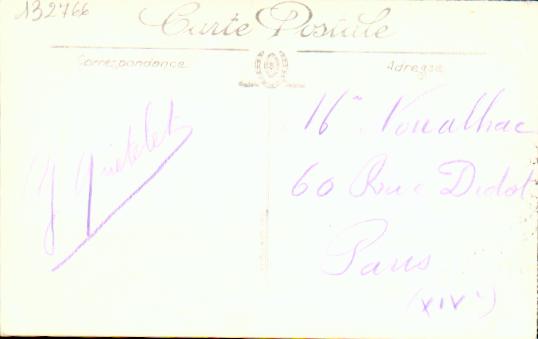 132766
Carte Postale
Correspondance
Adresse
Nouailhac
60 Rue Didot
Paris
(XIVᵉ)